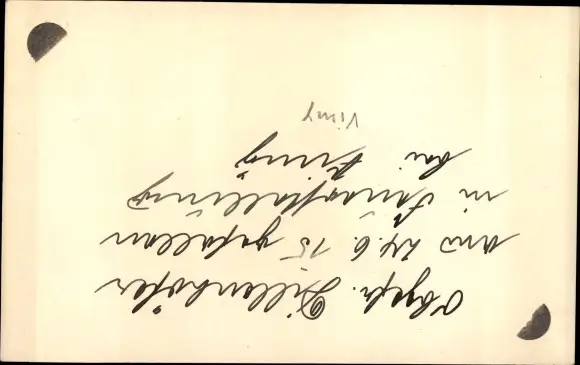 Obgefr. Dillenhöfer
am 24.6.15 gefallen
in Feuerstellung
bei Vimy
Vimy